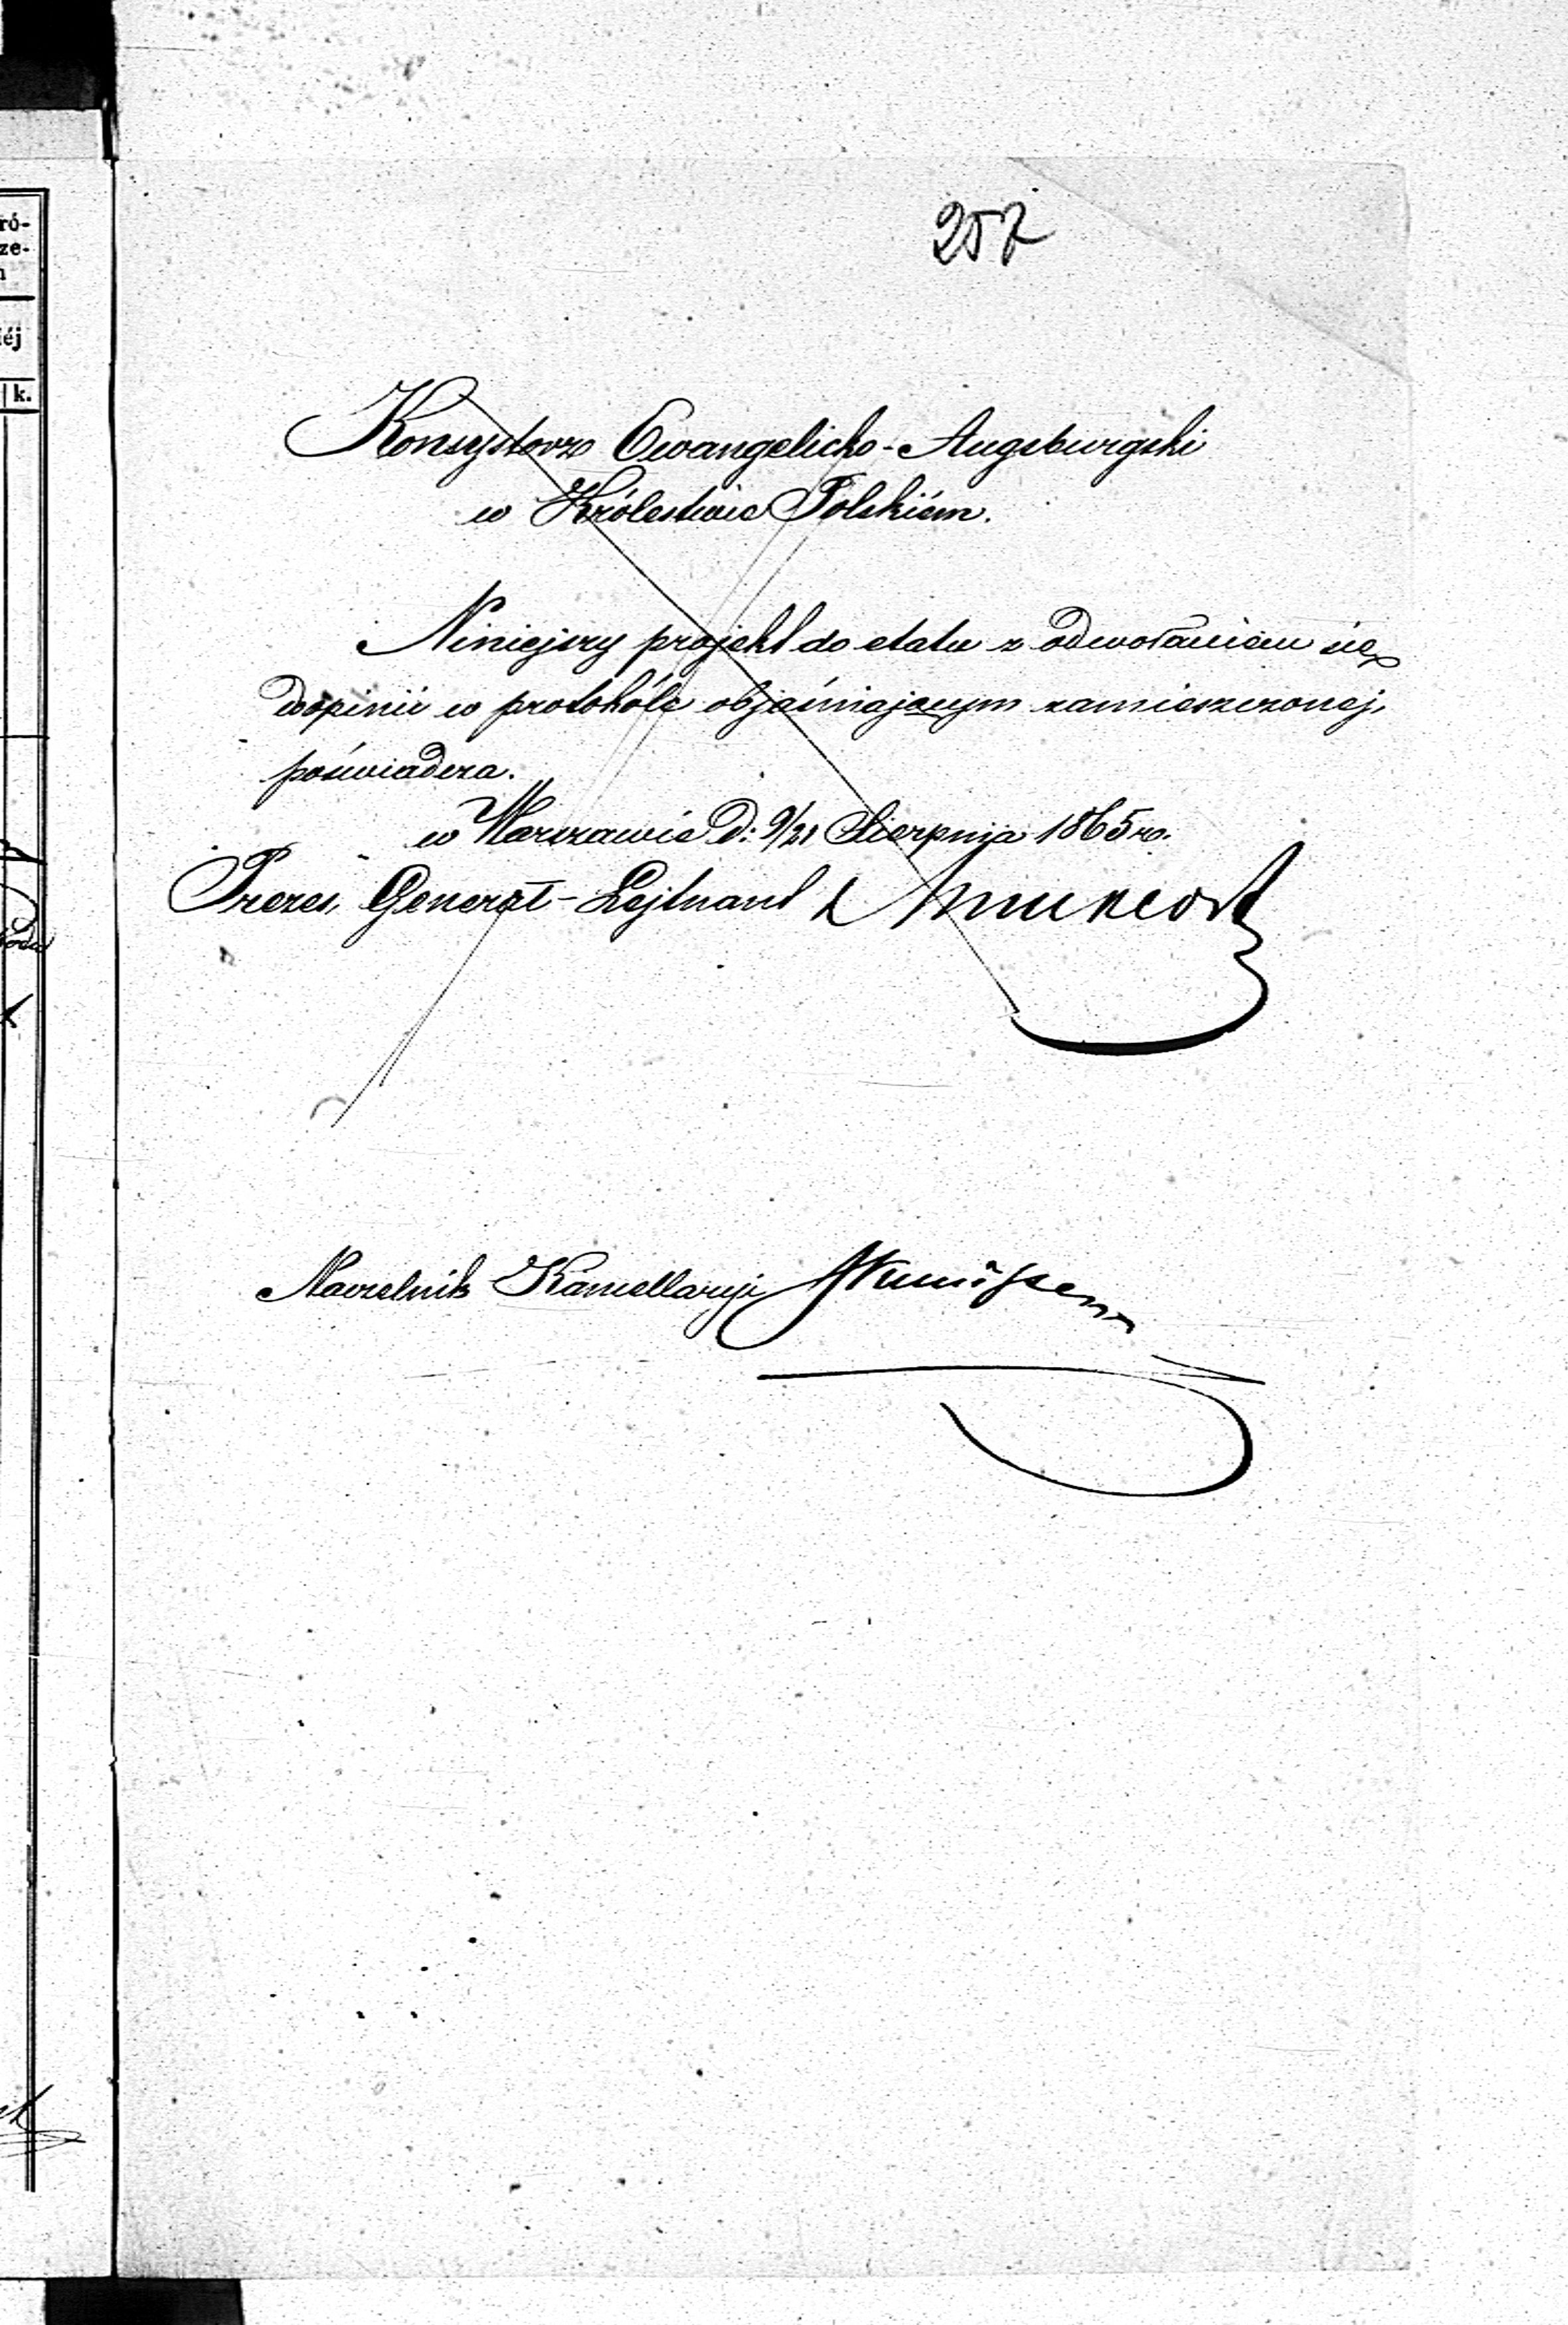 257
Konsystorz Ewangelicko-Augsburgski
w Królestwie Polskiém.
Niniejszy projekt do etatu z odwołaniem się
do opinii w protokóle objaśniającym zamieszczonej,
poświadcza.
w Warszawie d: 9/21 Sierpnia 1865 r.
Prezes, Generał-Lejtnant
Naczelnik Kancellaryi
ró-
ze-
éj
k.